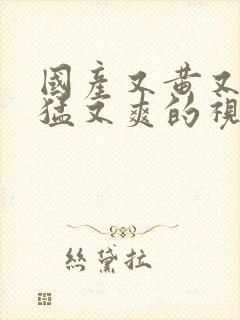 國產又黃又
猛又爽的視
絲黛拉